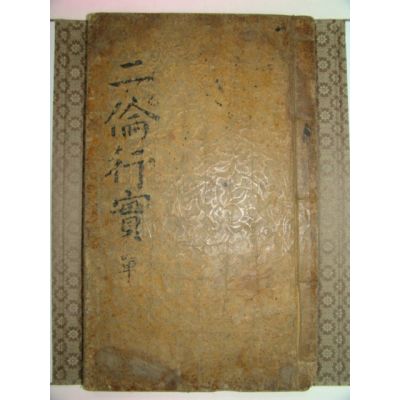 二倫行實 單